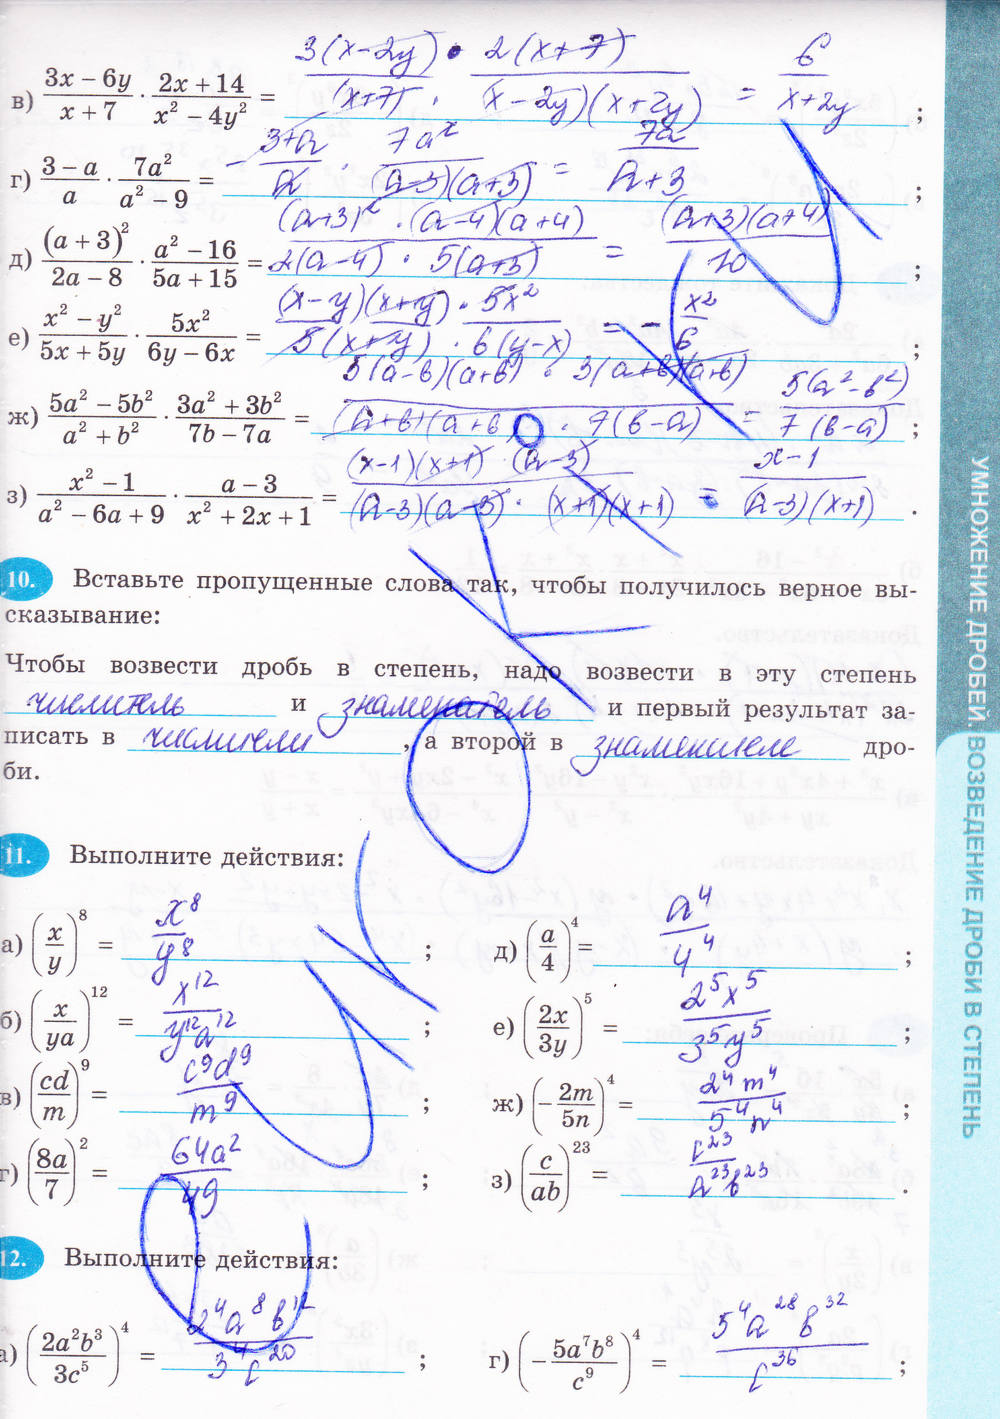 в) (3x − 6y)/(x + 7) · (2x + 14)/(x² − 4y²) = (3(x−2y) · 2(x+7))/((x+7) · (x−2y)(x+2y)) = 6/(x+2y) ;
г) (3 − a)/a · 7a²/(a² − 9) = −(3+a)/a · 7a²/((a−3)(a+3)) = 7a/(a+3) ;
д) (a + 3)²/(2a − 8) · (a² − 16)/(5a + 15) = ((a+3)² · (a−4)(a+4))/(2(a−4) · 5(a+3)) = ((a+3)(a+4))/10 ;
е) (x² − y²)/(5x + 5y) · 5x²/(6y − 6x) = ((x−y)(x+y) · 5x²)/(5(x+y) · 6(y−x)) = −x²/6 ;
ж) (5a² − 5b²)/(a² + b²) · (3a² + 3b²)/(7b − 7a) = (5(a−b)(a+b) · 3(a+b)(a+b))/((a+b)(a+b) · 7(b−a)) = 5(a²−b²)/7(b−a) ;
з) (x² − 1)/(a² − 6a + 9) · (a − 3)/(x² + 2x + 1) = ((x−1)(x+1) · (a−3))/((a−3)(a−3) · (x+1)(x+1)) = (x−1)/((a−3)(x+1)) .
10. Вставьте пропущенные слова так, чтобы получилось верное вы-
сказывание:
Чтобы возвести дробь в степень, надо возвести в эту степень
числитель и знаменатель и первый результат за-
писать в числители, а второй в знаменителе дро-
би.
11. Выполните действия:
а) (x/y)⁸ = x⁸/y⁸ ; д) (a/4)⁴ = a⁴/4⁴ ;
б) (x/ya)¹² = x¹²/y¹²a¹² ; е) (2x/3y)⁵ = 2⁵x⁵/3⁵y⁵ ;
в) (cd/m)⁹ = c⁹d⁹/m⁹ ; ж) (−2m/5n)⁴ = 2⁴m⁴/5⁴n⁴ ;
г) (8a/7)² = 64a²/49 ; з) (c/ab)²³ = c²³/a²³b²³ .
12. Выполните действия:
а) (2a²b³/3c⁵)⁴ = 2⁴a⁸b¹²/3⁴c²⁰ ; г) (−5a⁷b⁸/c⁹)⁴ = 5⁴a²⁸b³²/c³⁶ ;
УМНОЖЕНИЕ ДРОБЕЙ. ВОЗВЕДЕНИЕ ДРОБИ В СТЕПЕНЬ